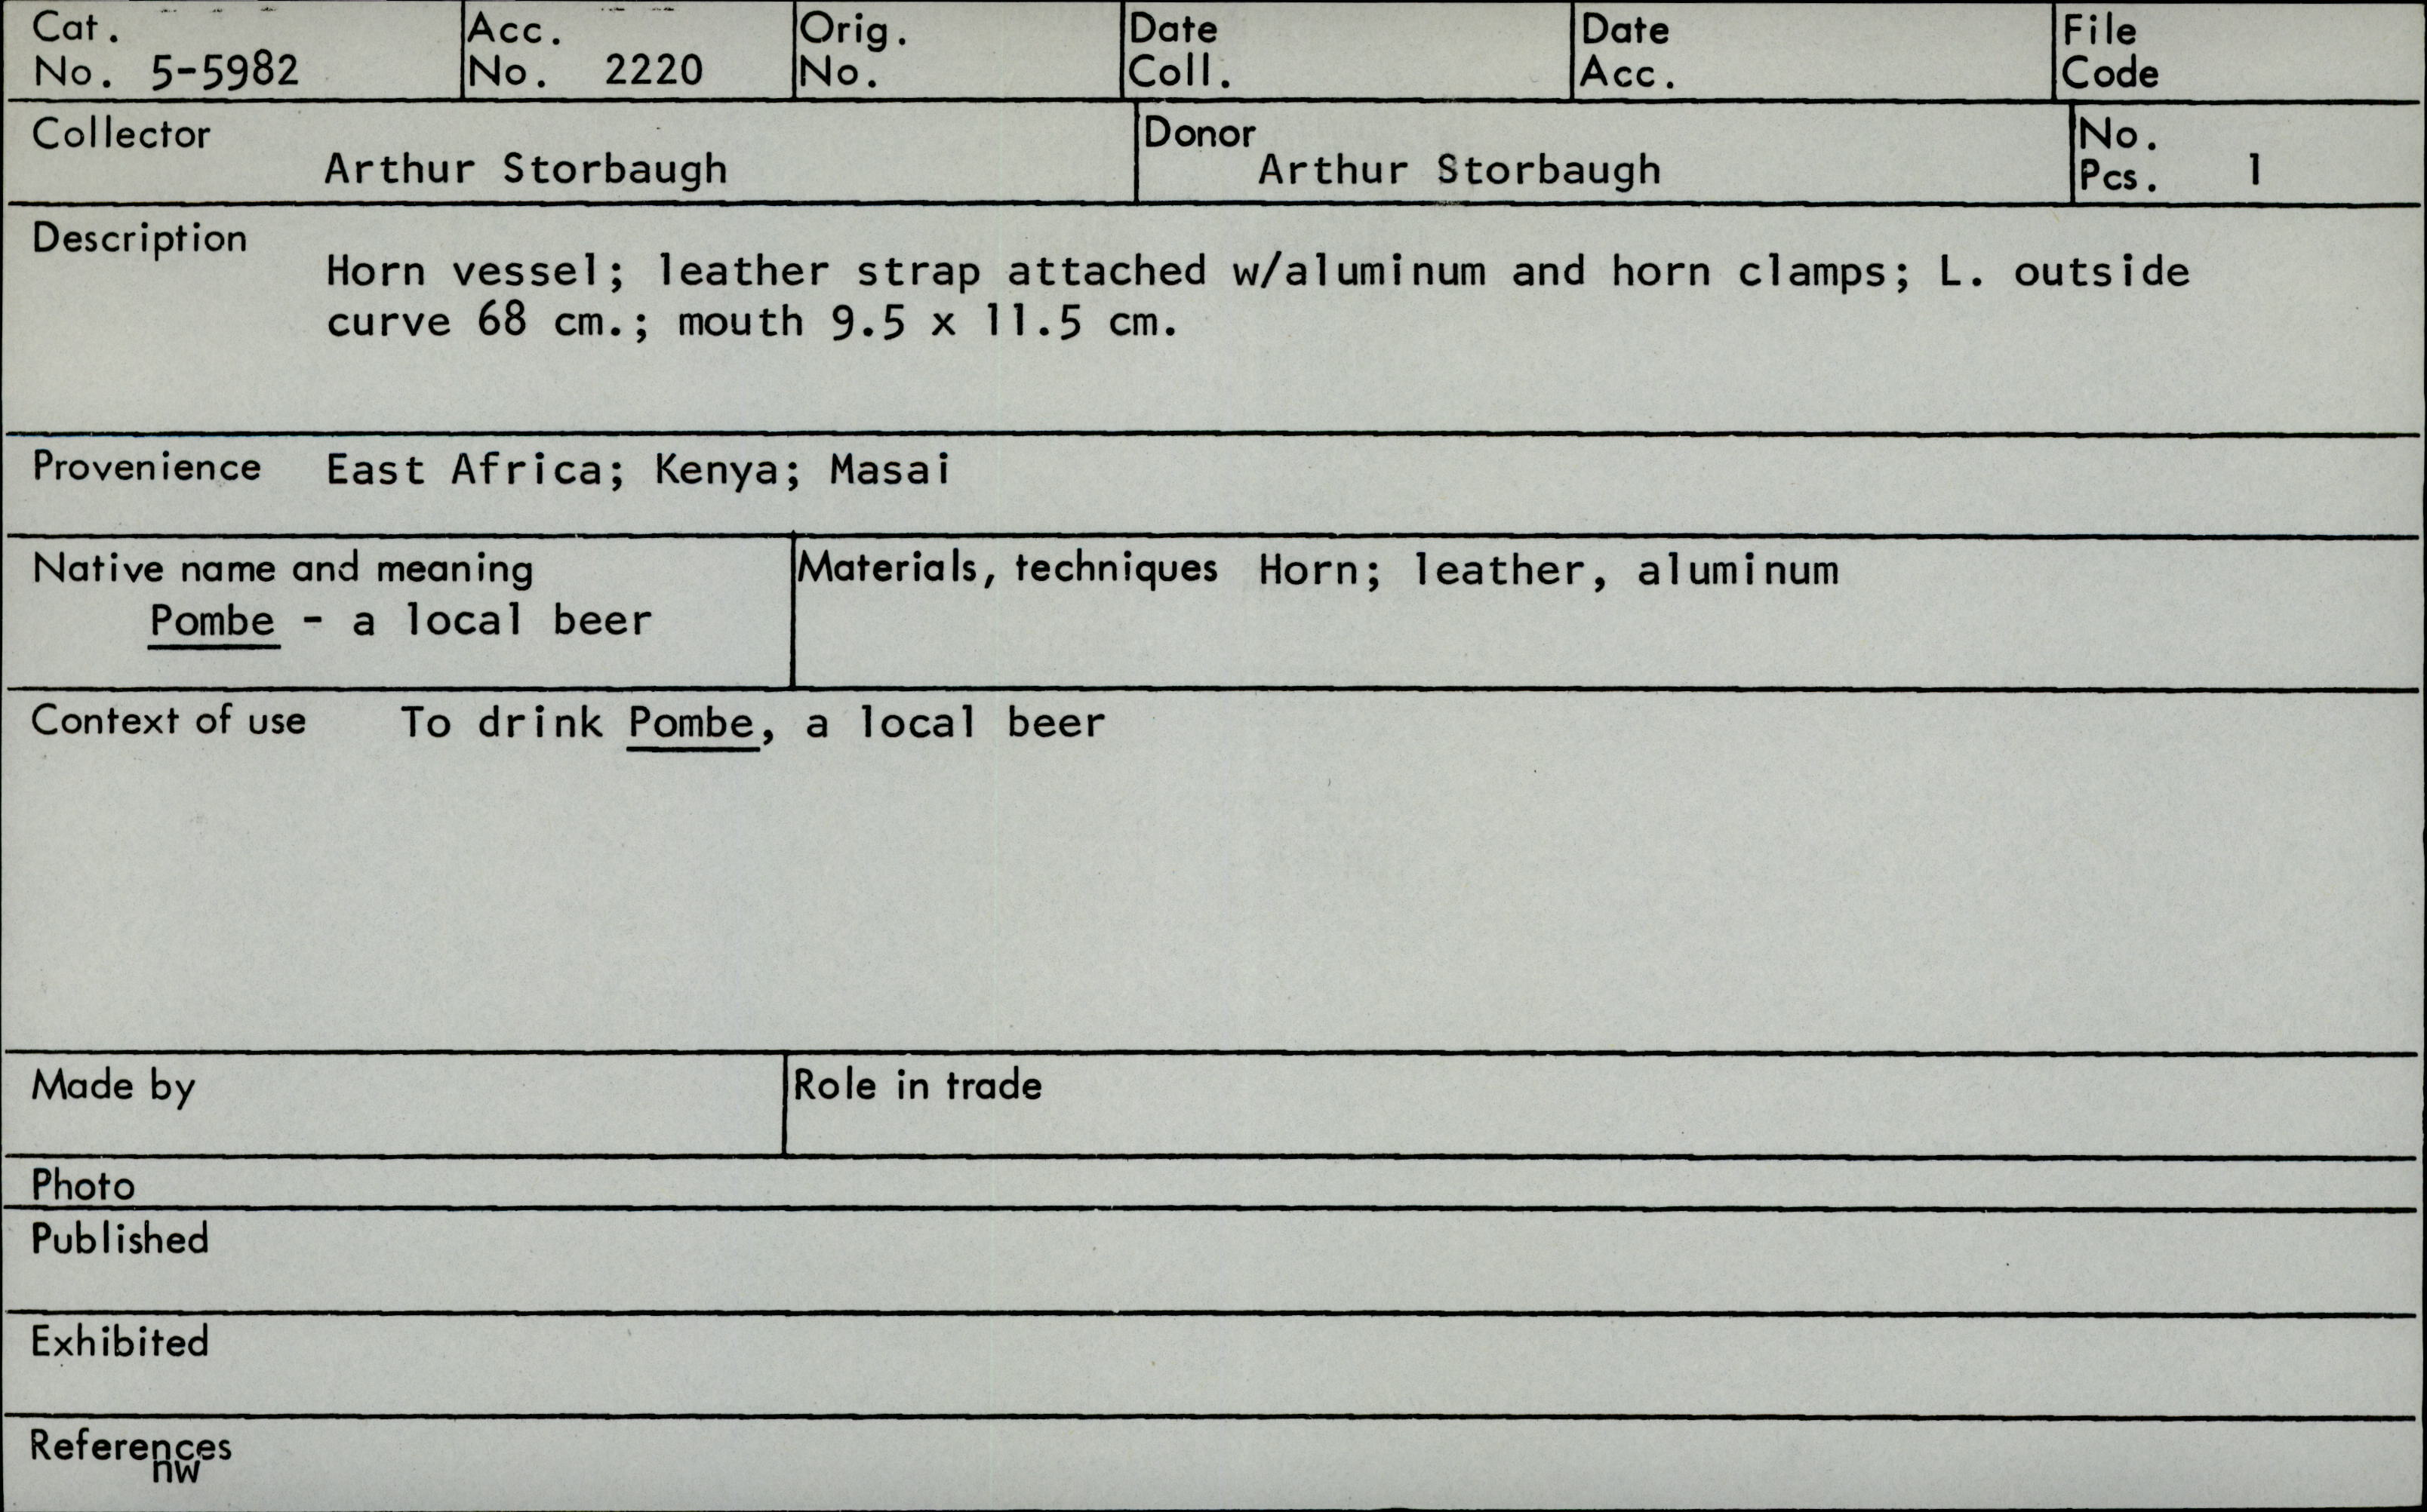 Cat. No. 5-5982
Acc. No. 2220
Orig. No.
Date Coll.
Date Acc.
File Code
Collector Arthur Storbaugh
Donor Arthur Storbaugh
No. Pcs. 1
Description
Horn vessel; leather strap attached w/aluminum and horn clamps; L. outside
curve 68 cm.; mouth 9.5 x 11.5 cm.
Provenience East Africa; Kenya; Masai
Native name and meaning
Pombe - a local beer
Materials, techniques Horn; leather, aluminum
Context of use To drink Pombe, a local beer
Made by
Role in trade
Photo
Published
Exhibited
References
nw